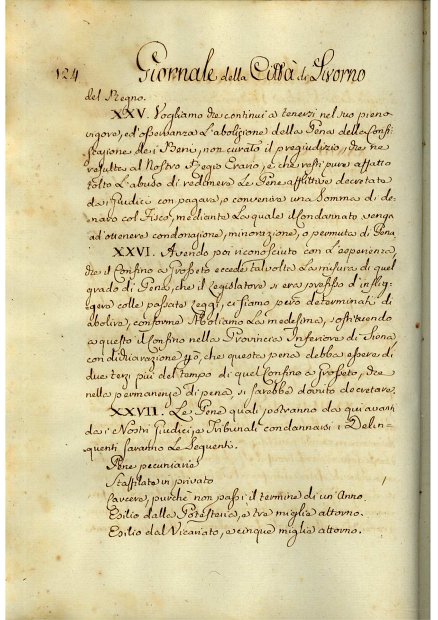 124 Giornale della Città di Livorno
del Regno.
XXV. Vogliamo che continui a tenersi nel suo pieno
vigore, ed osservanza L'abolizione della Pena della Confi-
scazione de i Beni, non curato il pregiudizio, che ne
resulta al Nostro Regio Erario, e che resti pure affatto
tolto L'abuso di redimere Le Pene afflittive decretate
da i Giudici con pagare, o convenire una Somma di de-
naro col Fisco, mediante La quale il Condannato venga
ad ottenere condonazione, minorazione, o permuta di Pena
XXVI. Avendo poi riconosciuto con L'esperienza,
che il Confino a Grosseto eccede talvolta La misura di quel
grado di Pena, che il Legislatore si era prefisso d'infli-
gere colle passate Leggi, ci siamo però determinati di
abolire, conforme Aboliamo La medesima, sostituendo
a questo il Confino nella Provincia Inferiore di Siena,
con dichiarazione che questa pena debba essere di
due terzi più del tempo di quel Confino a Grosseto, che
nella permanenza di pena, si sarebbe dovuto decretare.
XXVII. Le Pene quali potranno da qui avanti
da i Nostri Giudici, e Tribunali condannarsi i Delin-
quenti saranno Le Seguenti.
Pene pecuniarie
Staffilate in privato
Carcere, purchè non passi il termine di un'Anno.
Esilio dalla Potesteria, e tre miglia attorno.
Esilio dal Vicariato, e cinque miglia attorno.